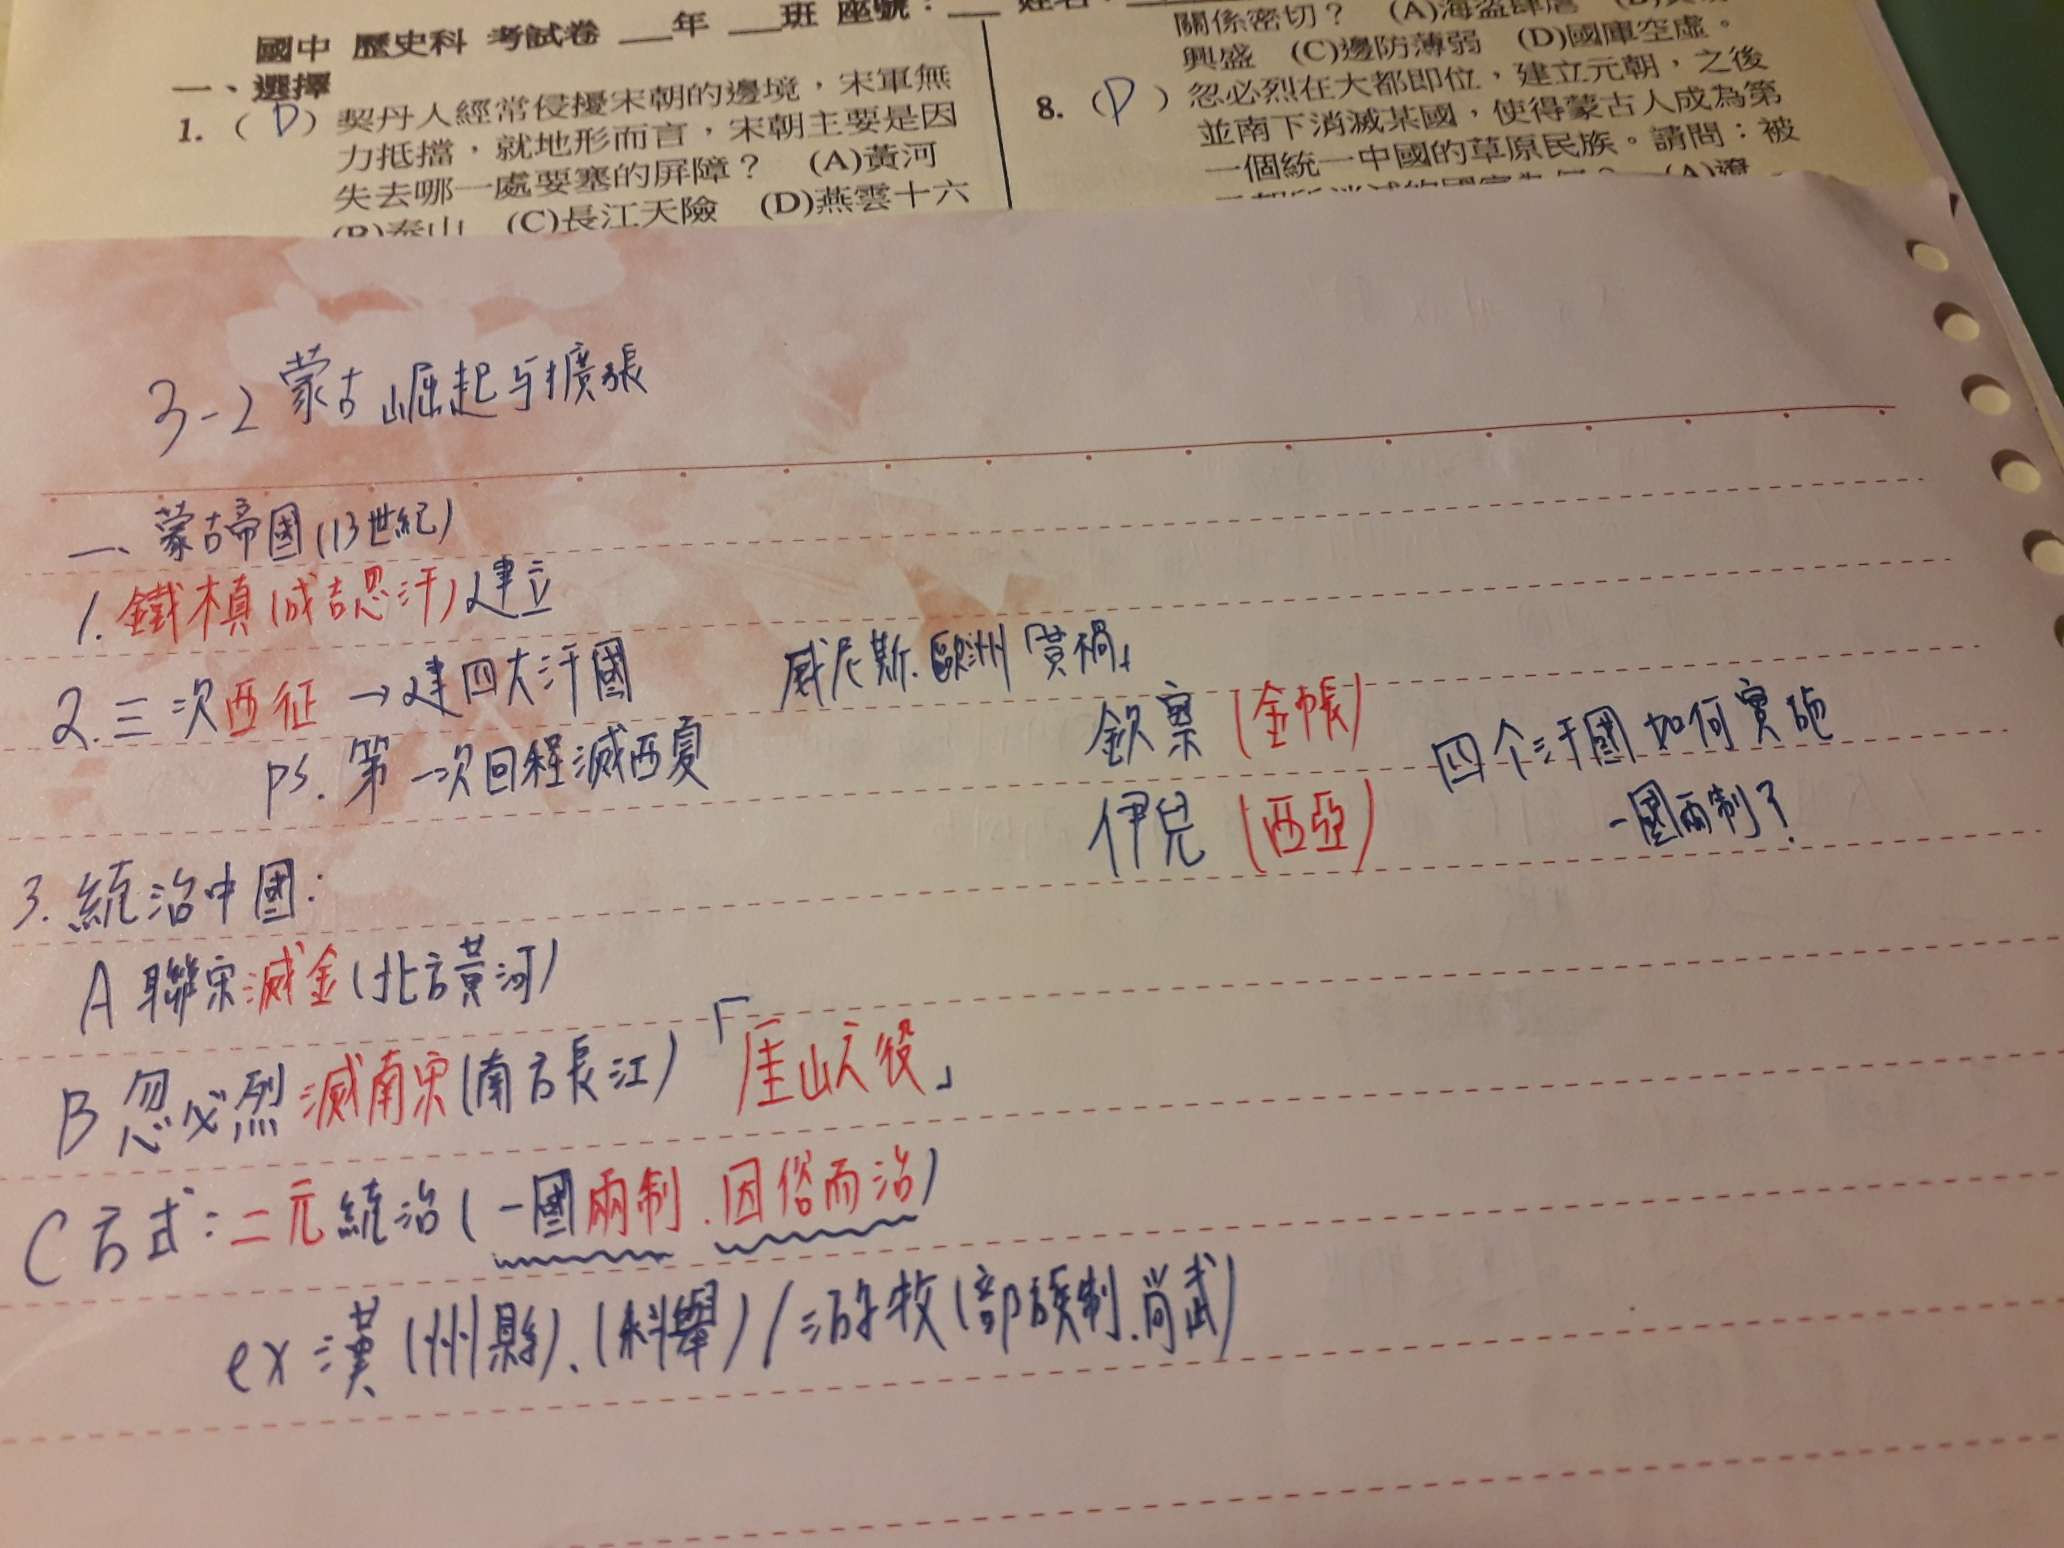 國中 歷史科 考試卷 __年 __班 座號：__
一、選擇
1. （ D ）契丹人經常侵擾宋朝的邊境，宋軍無
力抵擋，就地形而言，宋朝主要是因
失去哪一處要塞的屏障？ (A)黃河
(B)泰山 (C)長江天險 (D)燕雲十六
關係密切？ (A)海盜肆虐
興盛 (C)邊防薄弱 (D)國庫空虛。
8. （ D ）忽必烈在大都即位，建立元朝，之後
並南下消滅某國，使得蒙古人成為第
一個統一中國的草原民族。請問：被
(A)遼
3-2 蒙古崛起与擴張
一、蒙古帝國(13世紀)
1. 鐵木真(成吉思汗)建立
2. 三次西征→建四大汗國 威尼斯.歐洲「黃禍」
ps. 第一次回程滅西夏
欽察(金帳)
伊兒(西亞)
四个汗國如何實施
一國兩制?
3. 統治中國:
A 聯宋滅金(北方黃河)
B 忽必烈滅南宋(南方長江)「厓山之役」
C 方式:二元統治(一國兩制.因俗而治)
ex 漢(州縣)、(科舉)/游牧(部族制.尚武)